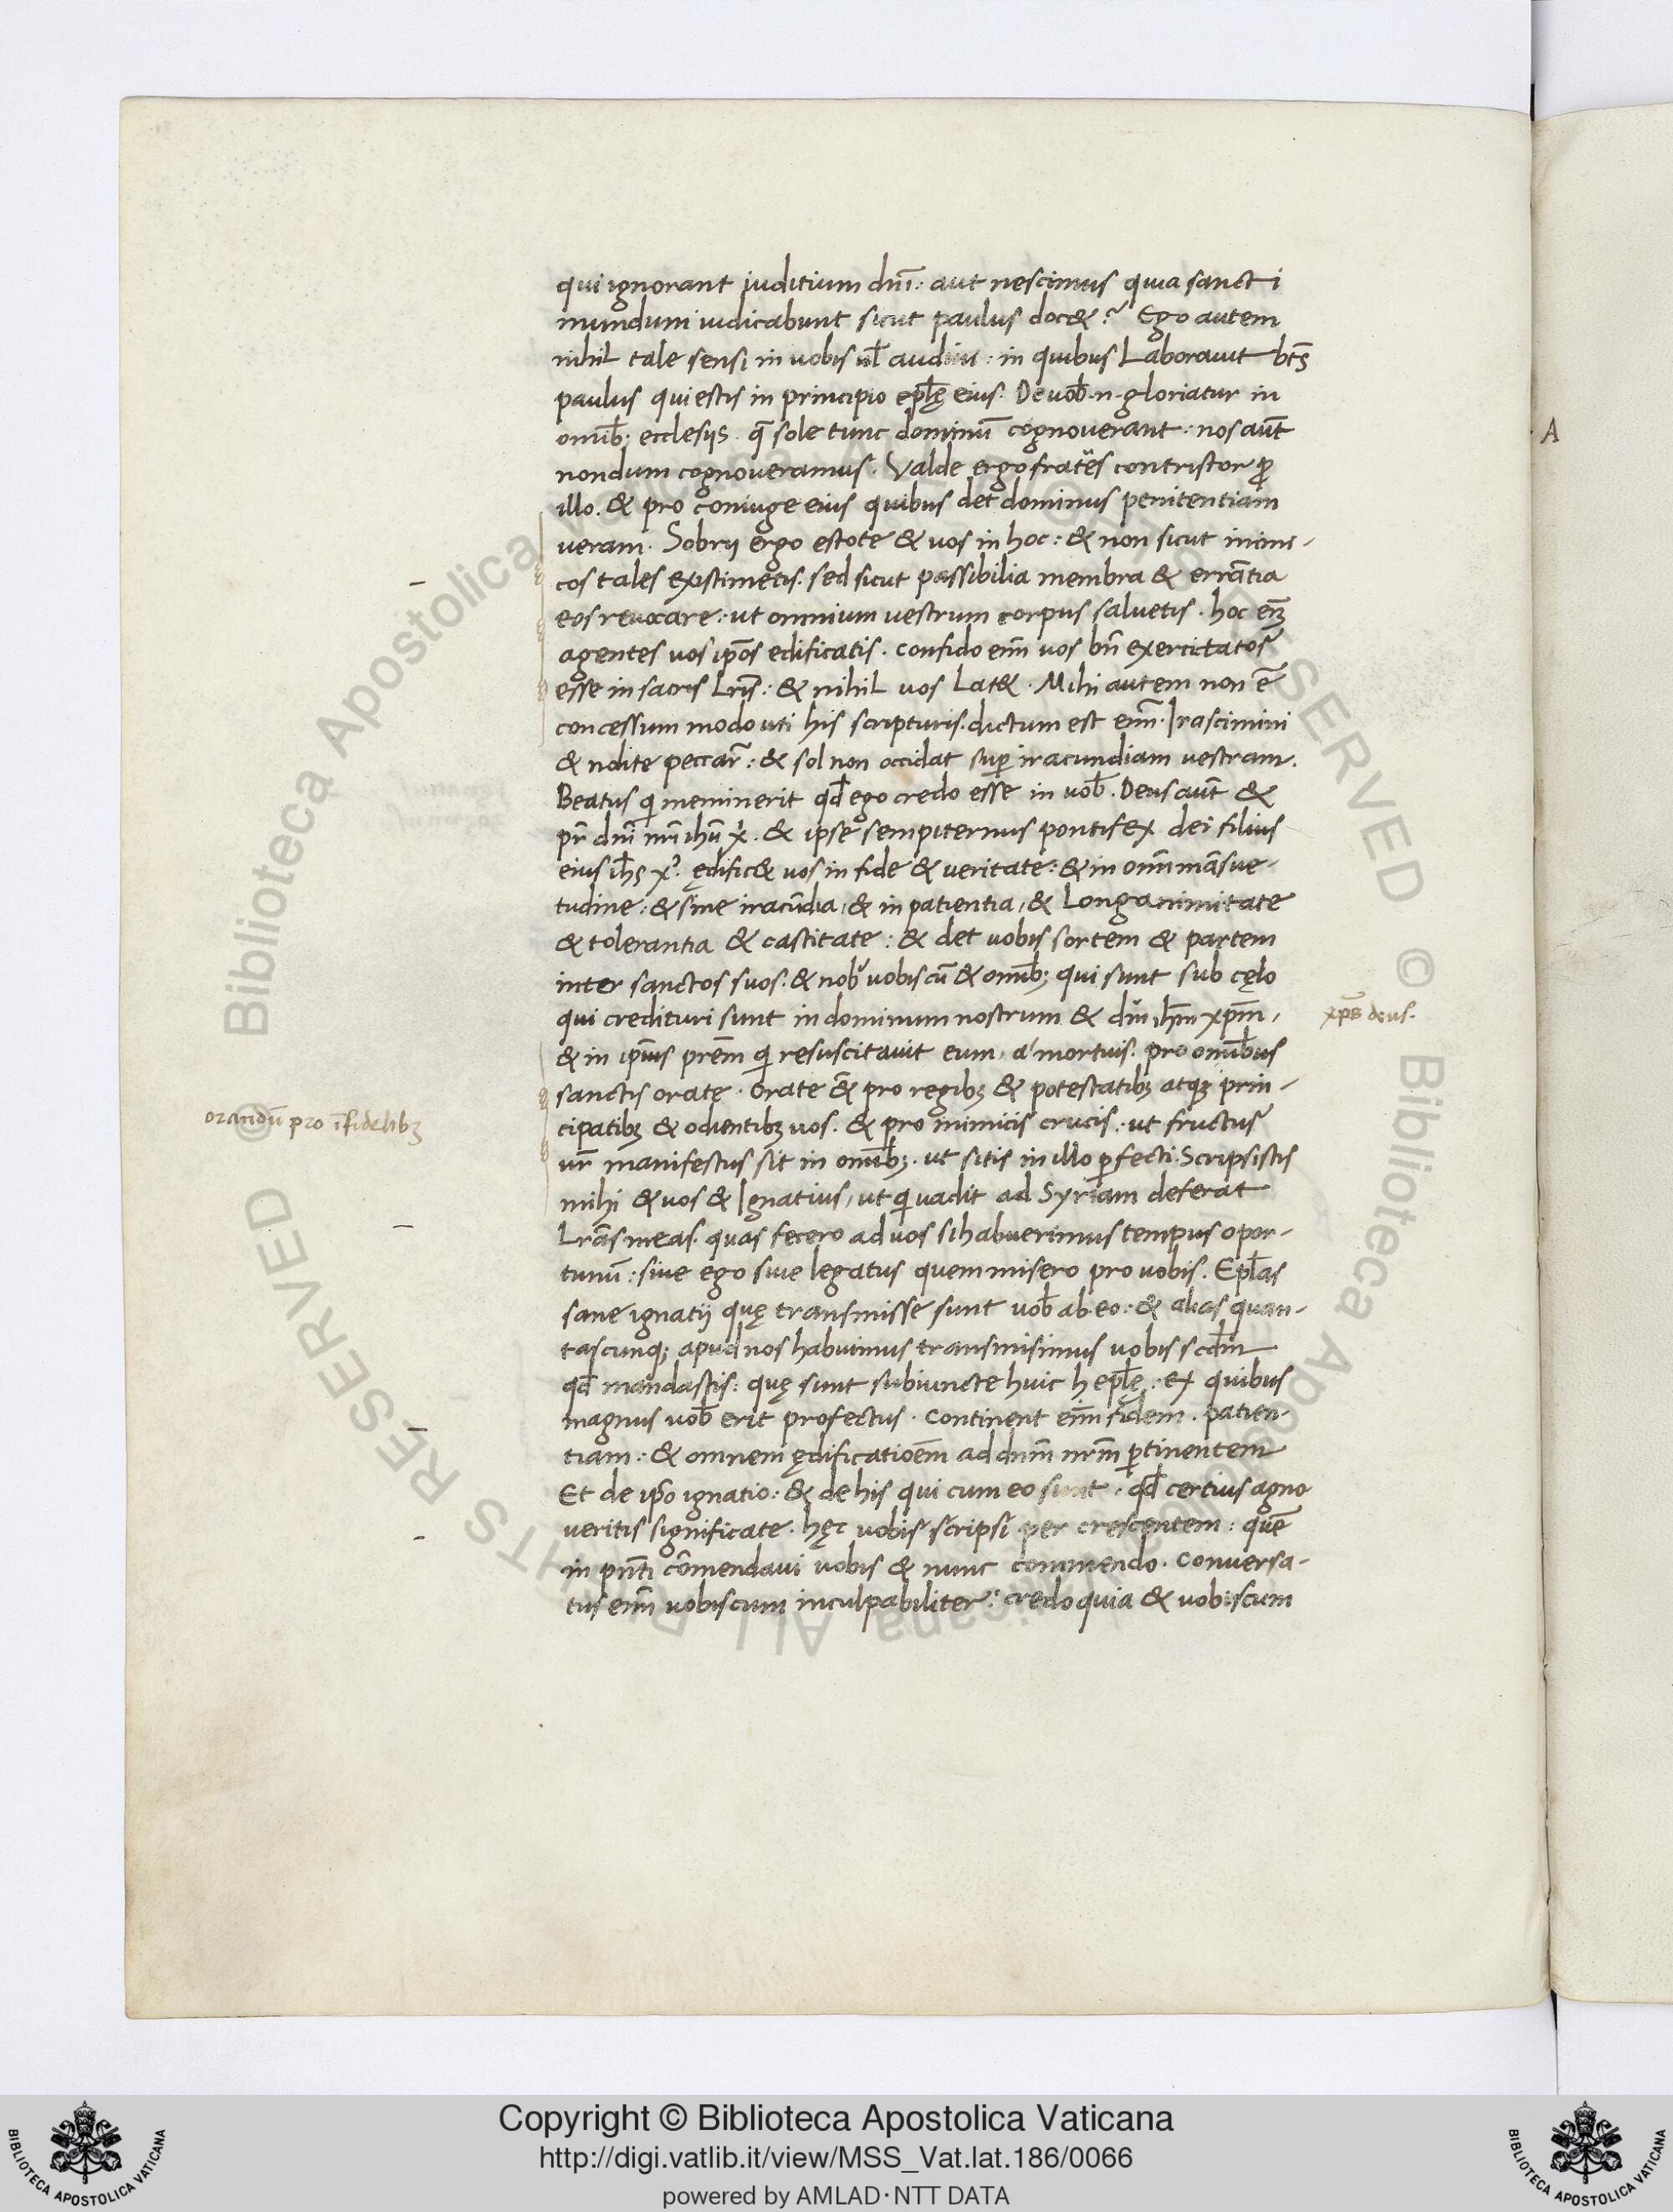 qui ignorant iuditium dnī: aut nescimus quia sancti
mundum iudicabunt sicut paulus doc&? Ego autem
nihil tale sensi in uobis ul̄ audiui: in quibus Laborauit bt̄s
paulus qui estis in principio epl̄ę eius. De uob̄ .n. gloriatur in
omib̄; ecclesijs. q̄ sole tunc dominū cognouerant: nos aūt
nondum cognoueramus. Valde ergo fratēs contristor ꝓ
illo. & pro coniuge eius quibus det dominus penitentiam
ueram. Sobrij ergo estote & uos in hoc: & non sicut inimi-
cos tales existimetis. sed sicut passibilia membra & errātia
eos reuocare: ut omnium uestrum corpus saluetis. hoc em̄
agentes uos ip̄os edificatis. confido em̄ uos bn̄ exercitatos
esse in sacris Lrīs: & nihil uos Lat&. Mihi autem non ē
concessum modo uti his scripturis. dictum est em̄. Irascimini
& nolite peccar̄: & sol non occidat suꝑ iracundiam uestram.
Beatus q̄ meminerit qd̄ ego credo esse in uob̄. Deus aūt &
pr̄ dnī nrī ihū x̄. & ipse sempiternus pontifex dei filius
eius ih̄s x̄. ędific& uos in fide & ueritate: & in omī māsue-
tudine: & sine iracūdia, & in patientia, & Longanimitate
& tolerantia & castitate: & det uobis sortem & partem
inter sanctos suos. & nob̄ uobiscū & omib̄; qui sunt sub cęlo
qui credituri sunt in dominum nostrum & dm̄ ihm̄ xpm̄,
& in ipīus prēm q̄ resuscitauit eum, a mortuis. pro omībus
sanctis orate. Orate ēt pro regibꝫ & potestatibꝫ atqꝫ prin-
cipatibꝫ & odientibꝫ uos. & pro inimicis crucis: ut fructus
ur̄ manifestus sit in omib̄;. ut sitis in illo ꝑfecti. Scripsistis
mihi & uos & Ignatius, ut q̄ uadit ad Syriam deferat
Lrās meas. quas fecero ad uos si habuerimus tempus opor-
tunū: siue ego siue legatus quem misero pro uobis. Epl̄as
sane ignatij quę transmisse sunt uob̄ ab eo: & alias quan-
tascunq; apud nos habuimus transmisimus uobis scdm̄
qd̄ mandastis: quę sunt subiuncte huic h epl̄ę: ex quibus
magnus uob̄ erit profectus. Continent em̄ fidem. patien-
tiam: & omnem ędificatioēm ad dnm̄ nrm̄ ꝑtinentem
Et de ip̄o ignatio: & de his qui cum eo sunt. qd̄ certius agno
ueritis significate. hęc uobis scripsi per crescentem: quē
in pn̄ti cōmendaui uobis & nunc commendo. Conuersa-
tus em̄ uobiscum inculpabiliter: credo quia & uobiscum
xp̄s deus.
orandū pro īfidelibꝫ
A
© Biblioteca Apostolica Vaticana ALL RIGHTS RESERVED
Copyright © Biblioteca Apostolica Vaticana
http://digi.vatlib.it/view/MSS_Vat.lat.186/0066
powered by AMLAD·NTT DATA
BIBLIOTECA APOSTOLICA VATICANA
BIBLIOTECA APOSTOLICA VATICANA